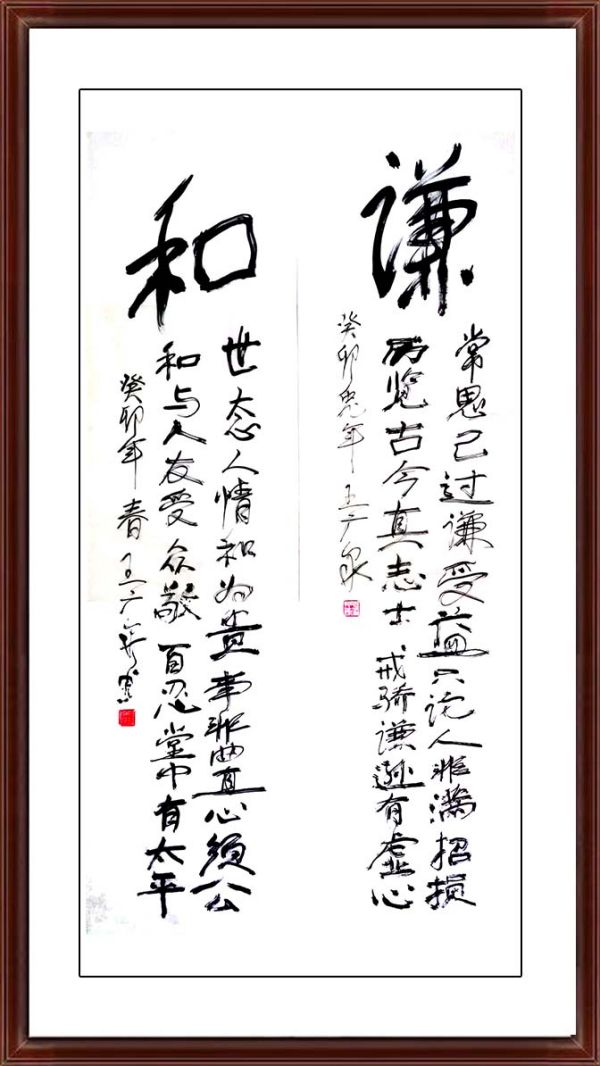 谦
常思己过谦受益只论人非满招损
历览古今真志士戒骄谦逊有虚心
癸卯兔年王广泉
和
世态人情和为贵事非曲直心须公
和与人友受众敬百忍堂中有太平
癸卯年春王广